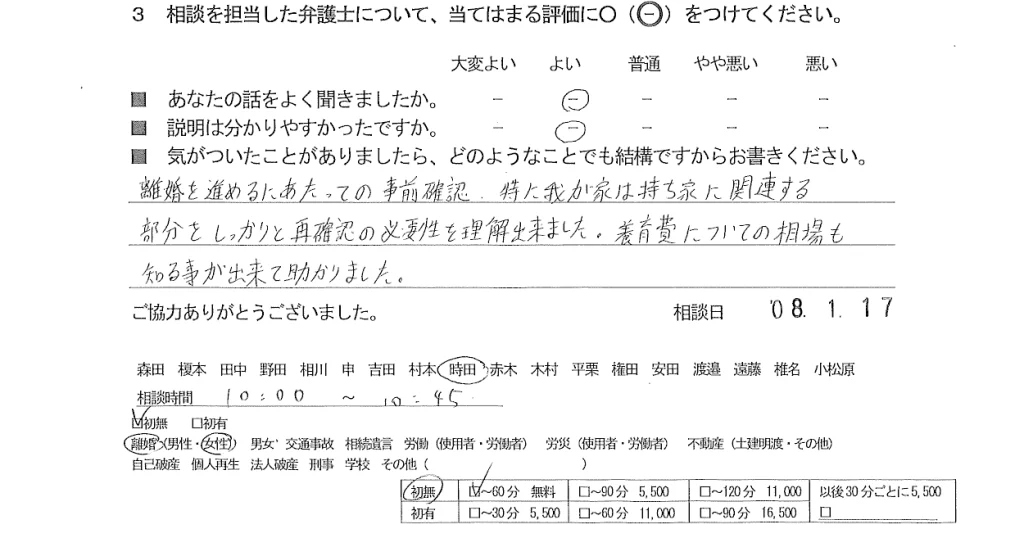 3 相談を担当した弁護士について、当てはまる評価に○（㊀）をつけてください。
大変よい よい 普通 やや悪い 悪い
■ あなたの話をよく聞きましたか。 － － － － －
■ 説明は分かりやすかったですか。 － － － － －
■ 気がついたことがありましたら、どのようなことでも結構ですからお書きください。
離婚を進めるにあたっての事前確認、特に我が家は持ち家に関連する
部分をしっかりと再確認の必要性を理解出来ました。養育費についての相場も
知る事が出来て助かりました。
ご協力ありがとうございました。 相談日 '08. 1. 17
森田 榎本 田中 野田 相川 申 吉田 村本 時田 赤木 木村 平栗 権田 安田 渡邉 遠藤 椎名 小松原
相談時間 10:00 ～ 10:45
☑初無 □初有
離婚（男性・女性） 男女 交通事故 相続遺言 労働（使用者・労働者） 労災（使用者・労働者） 不動産（土建明渡・その他）
自己破産 個人再生 法人破産 刑事 学校 その他（ ）
初無 ☑～60分 無料 □～90分 5,500 □～120分 11,000 以後30分ごとに5,500
初有 □～30分 5,500 □～60分 11,000 □～90分 16,500 □